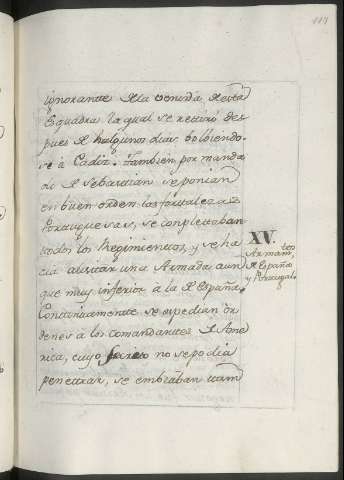 ignorante de la venida de esta
Esquadra la qual se retiró des
pues de halgunos dias bolbiendo
se à Cadiz. Tambien por manda
do de Sebastian se ponian
en buen orden las fortaleza
Portuguesas, se conpletaban
todos los Regimientos, y se ha
cia alistar una Armada aun
que muy inferior à la de España.
Continuamente se espedian òr
denes à los comandantes de Ame
rica, cuyo no se podia
penettrar, se embiaban ttam
XV.
Armam.tos
de España
y Portugal